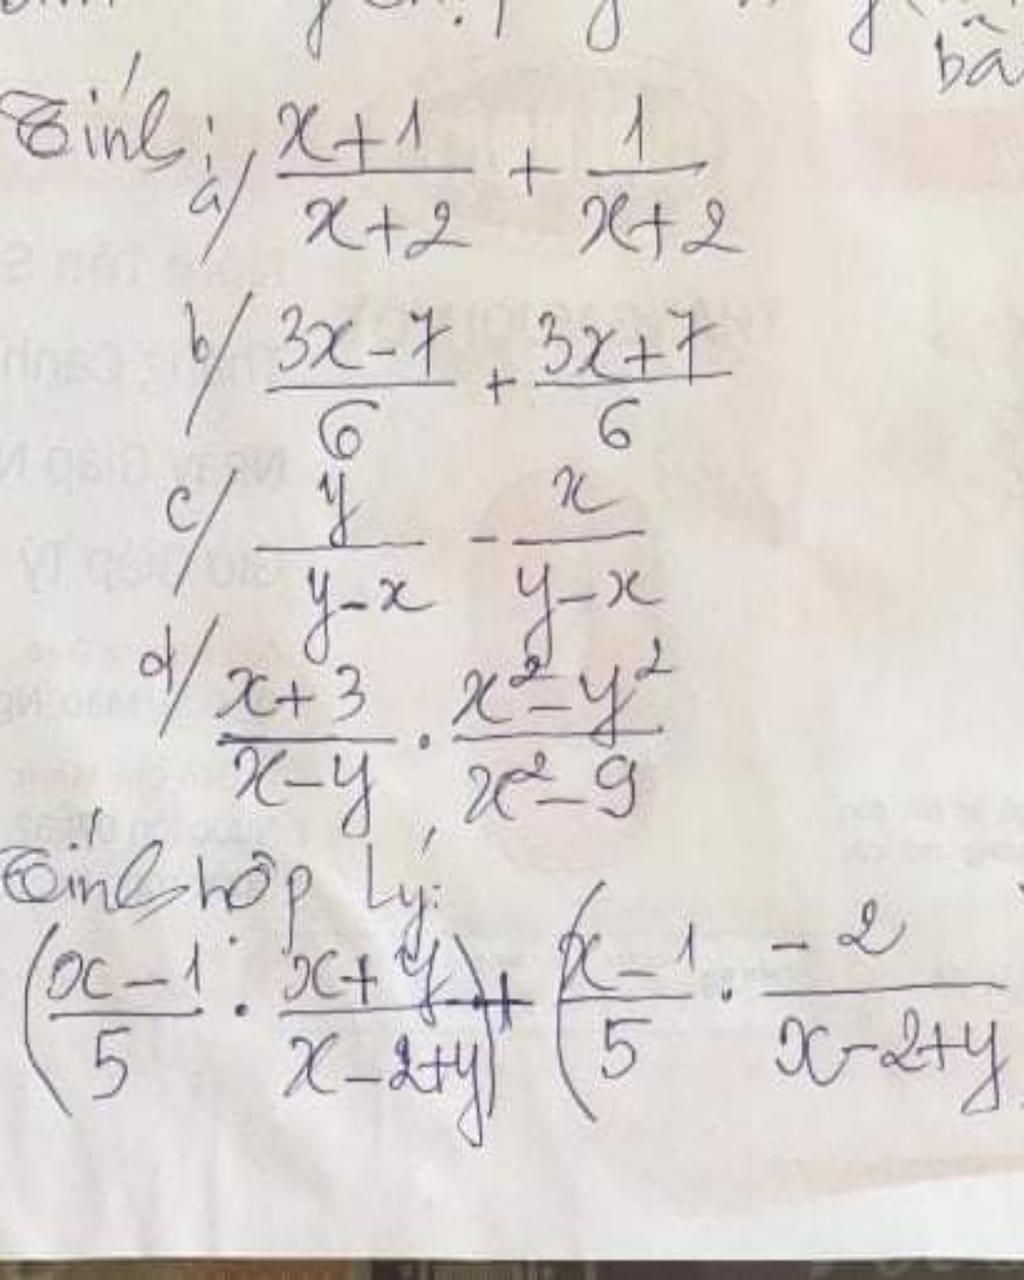 bã
Tính:
a/ \frac{x+1}{x+2} + \frac{1}{x+2}
b/ \frac{3x-7}{6} + \frac{3x+7}{6}
c/ \frac{y}{y-x} - \frac{x}{y-x}
d/ \frac{x+3}{x-y} . \frac{x^2-y^2}{x^2-9}
Tính hợp lý:
(\frac{x-1}{5} . \frac{x+y}{x-2+y}) + (\frac{x-1}{5} . \frac{-2}{x-2+y})